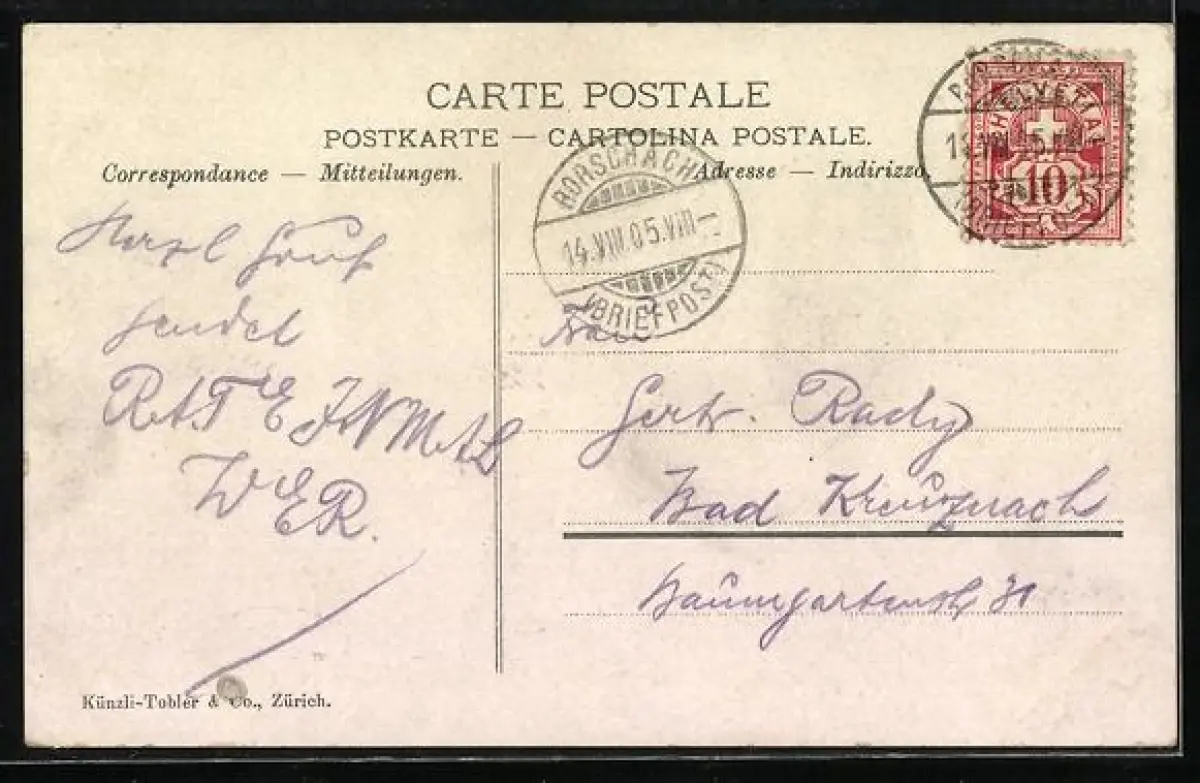 CARTE POSTALE
POSTKARTE — CARTOLINA POSTALE.
Correspondance — Mitteilungen.
Adresse — Indirizzo.
HELVETIA
10
RORSCHACH
14.VIII.05.VIII–
(BRIEFPOST)
Herzl Gruß
sendet
W E R.
Frau
Gertr. Rady
Bad Kreuznach
Baumgartenstr
Künzli-Tobler & Co., Zürich.